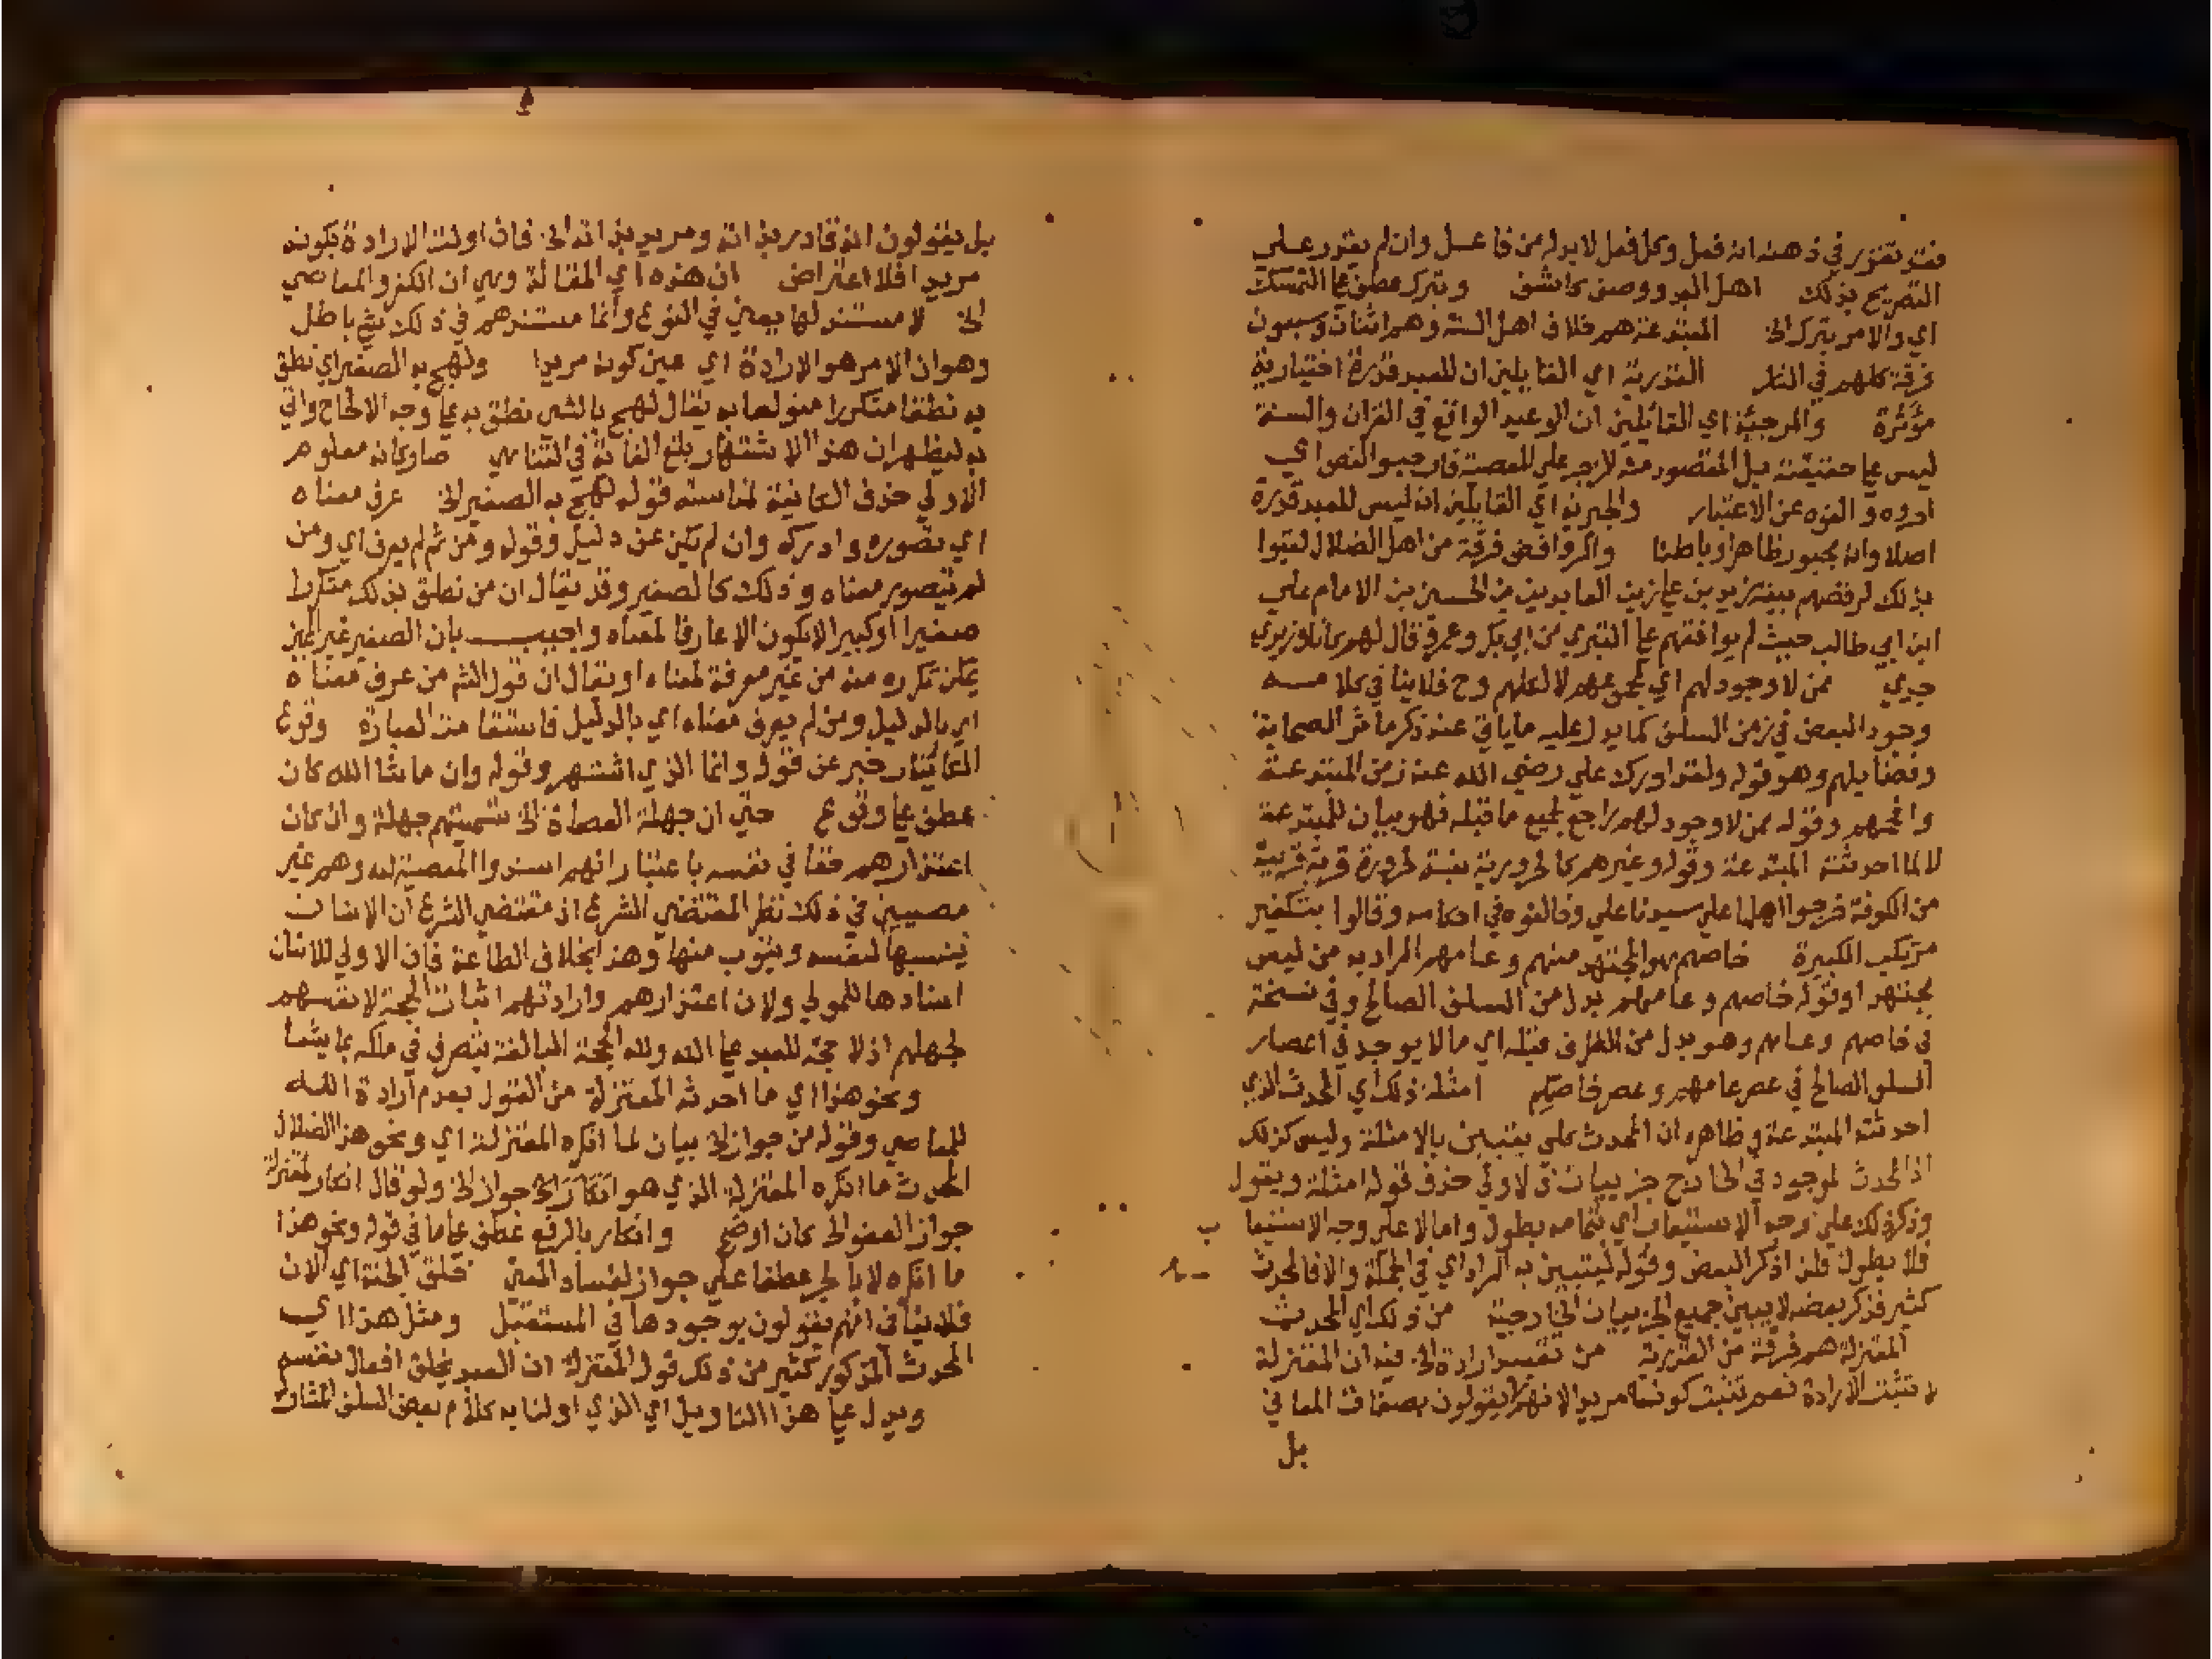 فقد تقرر في ذهنه انه فعل وكل فعل لابد له من فاعل وان لم يقدر على
التصريح بذلك اهل البدو وصف كاشف وبترك عطف على التمسك
اي والامر بترك الخ المبتدعة هم خلاف اهل السنة وهم اثنان وسبعون
فرقة كلهم في النار القدرية اي القايلين ان للعبد قدرة اختيارية
مؤثرة والمرجئة اي القائلين ان الوعيد الواقع في القران والسنة
ليس على حقيقته بل المقصود منه الزجر على المعصية اي
والغوه عن الاعتبار والجبرية اي القايلين انه ليس للعبد قدرة
اصلا وانه مجبور ظاهرا وباطنا والروافض فرقة من اهل الضلال لقبوا
بذلك لرفضهم بيعة زيد بن علي زين العابدين بن الحسين بن الامام علي
ابن ابي طالب حيث لم يوافقهم على التبري من ابي بكر وعمر وقال لهم كانا وزيري
جدي ممن لا وجود لهم اي لجميعهم لا لكلهم وح فلا ينافي كلامه
وجود البعض في زمن السلف كما يدل عليه ما ياتي عند ذكر ماثر الصحابة
وفضايلهم وهو قوله ولقد ادرك علي رضي الله عنه زمن المبتدعة
وافحمهم وقوله ممن لا وجود لهم راجع لجميع ما قبله فهو بيان للمبتدعة
لا لما احدثته المبتدعة وقوله وغيرهم كالحرورية نسبة لحرورة قرية قريبة
من الكوفة خرجوا اهلها على سيدنا علي وخالفوه في احكامه وقالوا بتكفير
مرتكب الكبيرة خاصهم هو المجتهد منهم وعامهم المراد به من ليس
بمجتهد او قوله خاصهم وعامهم بدل من السلف الصالح وفي نسخة
في خاصهم وعامهم وهو بدل من الظرف قبله اي ما لا يوجد في اعصار
السلف الصالح في عصر عامهم وعصر خاصهم امثلة ذلك اي المحدث الذي
احدثته المبتدعة وظاهره ان المحدث كلي يتبين بالامثلة وليس كذلك
اذ المحدث الموجود في الخارج جزييات فالاولى حذف قوله امثلة ويقول
وذكر ذلك على وجه الاستيعاب اي بتمامه يطول واما لا على وجه الاستيعا ب
فلا يطول فلذا ذكر البعض وقوله ليتبين به المراد اي في الجملة والا فالمحدث
كثير فذكر بعضه لا يبين جميع الجزييات الخارجية من ذلك اي المحدث
المعتزلة هم فرقة من القدرية من تقييد ارادة الخ فيه ان المعتزلة
لا تثبت الارادة نعم تثبت كونه مريدا لانهم لا يقولون بصفات المعاني
بل
بل يقولون انه قادر بذاته ومريد بذاته الخ فان اولت الارادة بكونه
مريدا فلا اعتراض ان هذه اي المقالة وهي ان الكفر والمعاصي
الخ لا مستند لها يعني في الشرع وانما مستندهم في ذلك شي باطل
وهو ان الامر هو الارادة اي عين كونه مريدا ولهج به الصغير اي نطق
به نطقا متكررا مولعا به يقال لهج بالشي نطق به على وجه الالحاح واتي
به ليظهر ان هذا الاشتهار بلغ الغاية في التناهي صار كانه معلوم
الاولى حذف الكانية لمناسبة قوله لهج به الصغير الخ عرف معناه
اي تصوره وادركه وان لم تكن عن دليل وقوله ومن ثم لم يعرف اي ومن
لم يتصور معناه وذلك كالصغير وقد يقال ان من نطق بذلك متكررا
صغيرا او كبيرا لا يكون الا عارفا لمعناه واجيب بان الصغير غير المميز
يمكن تكرره منه من غير معرفة لمعناه او يقال ان قول الشم من عرف معناه
اي بالدليل ومن لم يعرف معناه اي بالدليل فاستقامت العبارة وقوع
الكائنات خبر عن قوله وانما الذي اشتهر وقوله وان ما شا الله كان
عطف على وقوع حتى ان جهلة العصاة الخ تسميتهم جهلة وان كان
اعتذارهم حقا في نفسه باعتبار انهم اسندوا المعصية لله وهم غير
مصيبين في ذلك نظر المقتضي الشرع اذ مقتضي الشرع ان الانسان
ينسبها لنفسه ويتوب منها وهذا بخلاف الطاعة فان الاولى للانسان
اسنادها للمولى ولان اعتذارهم وارادتهم اثبات الحجة لانفسهم
لجهلهم اذ لا حجة للعبد على الله ولله الحجة البالغة يتصرف في ملكه بما يشا
ونحو هذا اي ما احدثه المعتزلة من القول بعدم ارادة الله
للمعاصي وقوله من جواز الخ بيان لما انكره المعتزلة اي ونحو هذا الضلال
المحدث ما انكره المعتزلة الذي هو انكار جواز الخ ولو قال انكار المعتزلة
جواز العفو الخ كان اوضح وانكار بالرفع عطف على ما في قوله ونحو هذا
ما انكره لا بالجر عطفا على جواز لفساد المعنى خلق الجنة اي الان
فلا ينافي انهم يقولون بوجودها في المستقبل ومثل هذا اي
المحدث المذكور كثير من ذلك قول المعتزلة ان العبد يخلق افعال نفسه
ويدل على هذا التاويل اي الذي اولنا به كلام بعض السلف